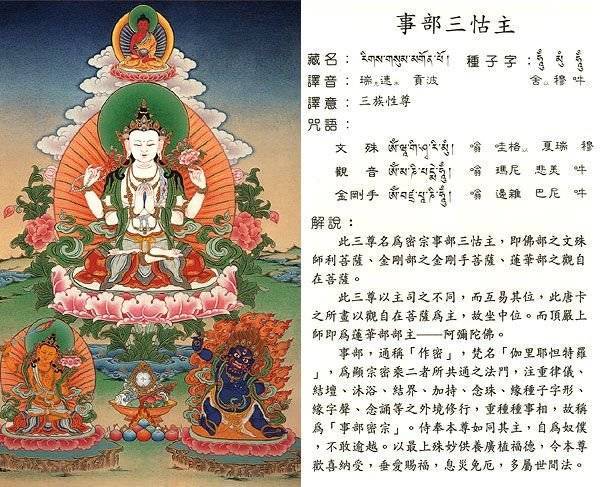 事部三怙主
藏名：རིགས་གསུམ་མགོན་པོ། 種子字：
譯音：瑞 速 貢波 舍 穆 吽
譯意：三族性尊
咒語：
文 殊 ཨོཾ་ཝཱ་གི་ཤྭ་རི་མུཾ། 嗡 哇格 夏瑞 穆
觀 音 ཨོཾ་མ་ཎི་པདྨེ་ཧཱུྃ། 嗡 瑪尼 悲美 吽
金剛手 ཨོཾ་བཛྲ་པཱ་ཎི་ཧཱུྃ། 嗡 邊雜 巴尼 吽
解說：
此三尊名爲密宗事部三怙主，即佛部之文殊
師利菩薩、金剛部之金剛手菩薩、蓮華部之觀自
在菩薩。
此三尊以主司之不同，而互易其位，此唐卡
之所畫以觀自在菩薩爲主，故坐中位。而頂嚴上
師即爲蓮華部部主——阿彌陀佛。
事部，通稱「作密」，梵名「伽里耶怛特羅
」，爲顯宗密乘二者所共通之法門，注重律儀、
結壇、沐浴、結界、加持、念珠、緣種子字形、
緣字聲、念誦等之外境修行，重種種事相，故稱
爲「事部密宗」。侍奉本尊如同其主，自爲如僕
，不敢逾越。以最上殊妙供養廣植福德，令本尊
歡喜納受，垂愛賜福，息災免厄，多屬世間法。